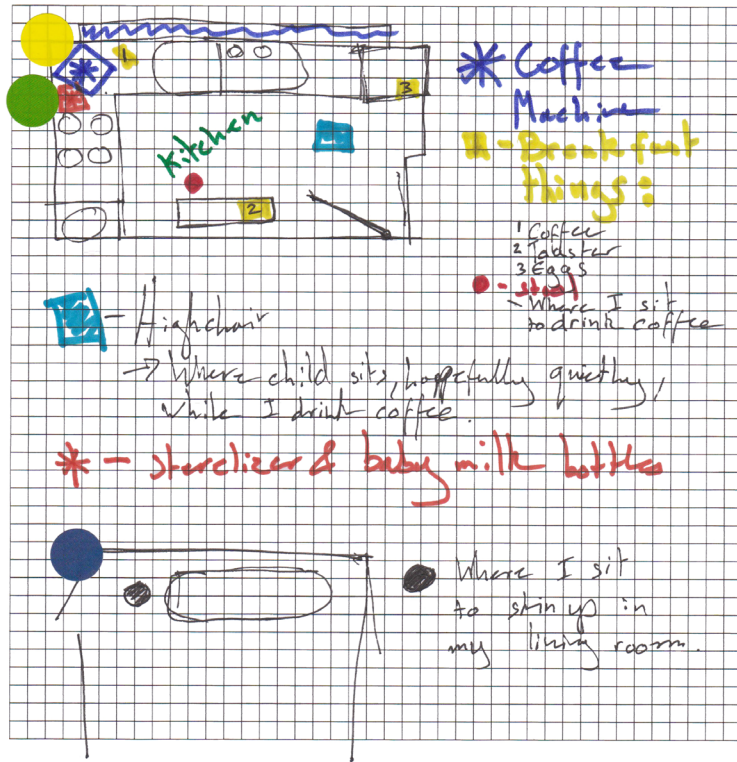 1
3
Kitchen
2
Coffee
Machine
- Breakfast
things:
1 Coffee
2 Toaster
3 Eggs
- stool
- Where I sit
to drink coffee
- Highchair
→ Where child sits, hoppefully quietly,
while I drink coffee.
- sterelizer & baby milk bottles
Where I sit
to skin up in
my living room.